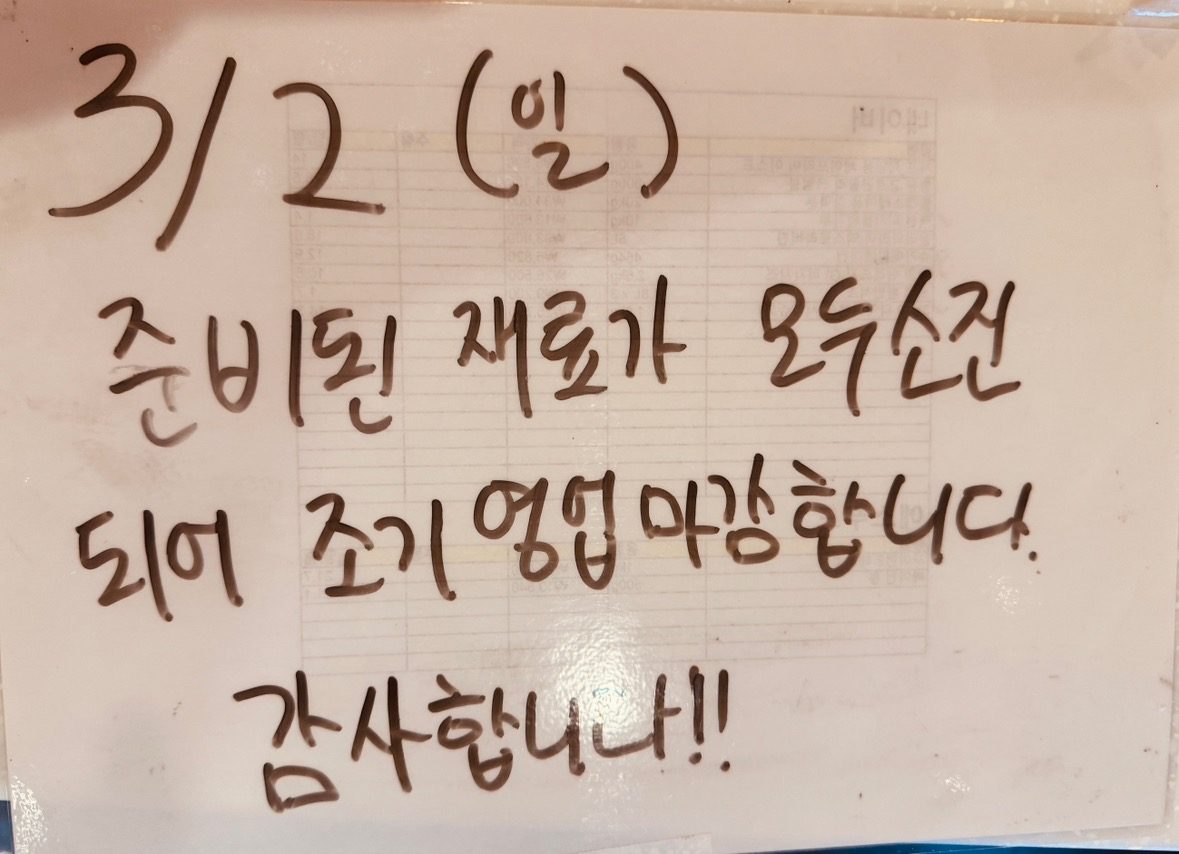 3/2 (일)
준비된 재료가 모두소진
되어 조기 영업 마감합니다.
감사합니다!!